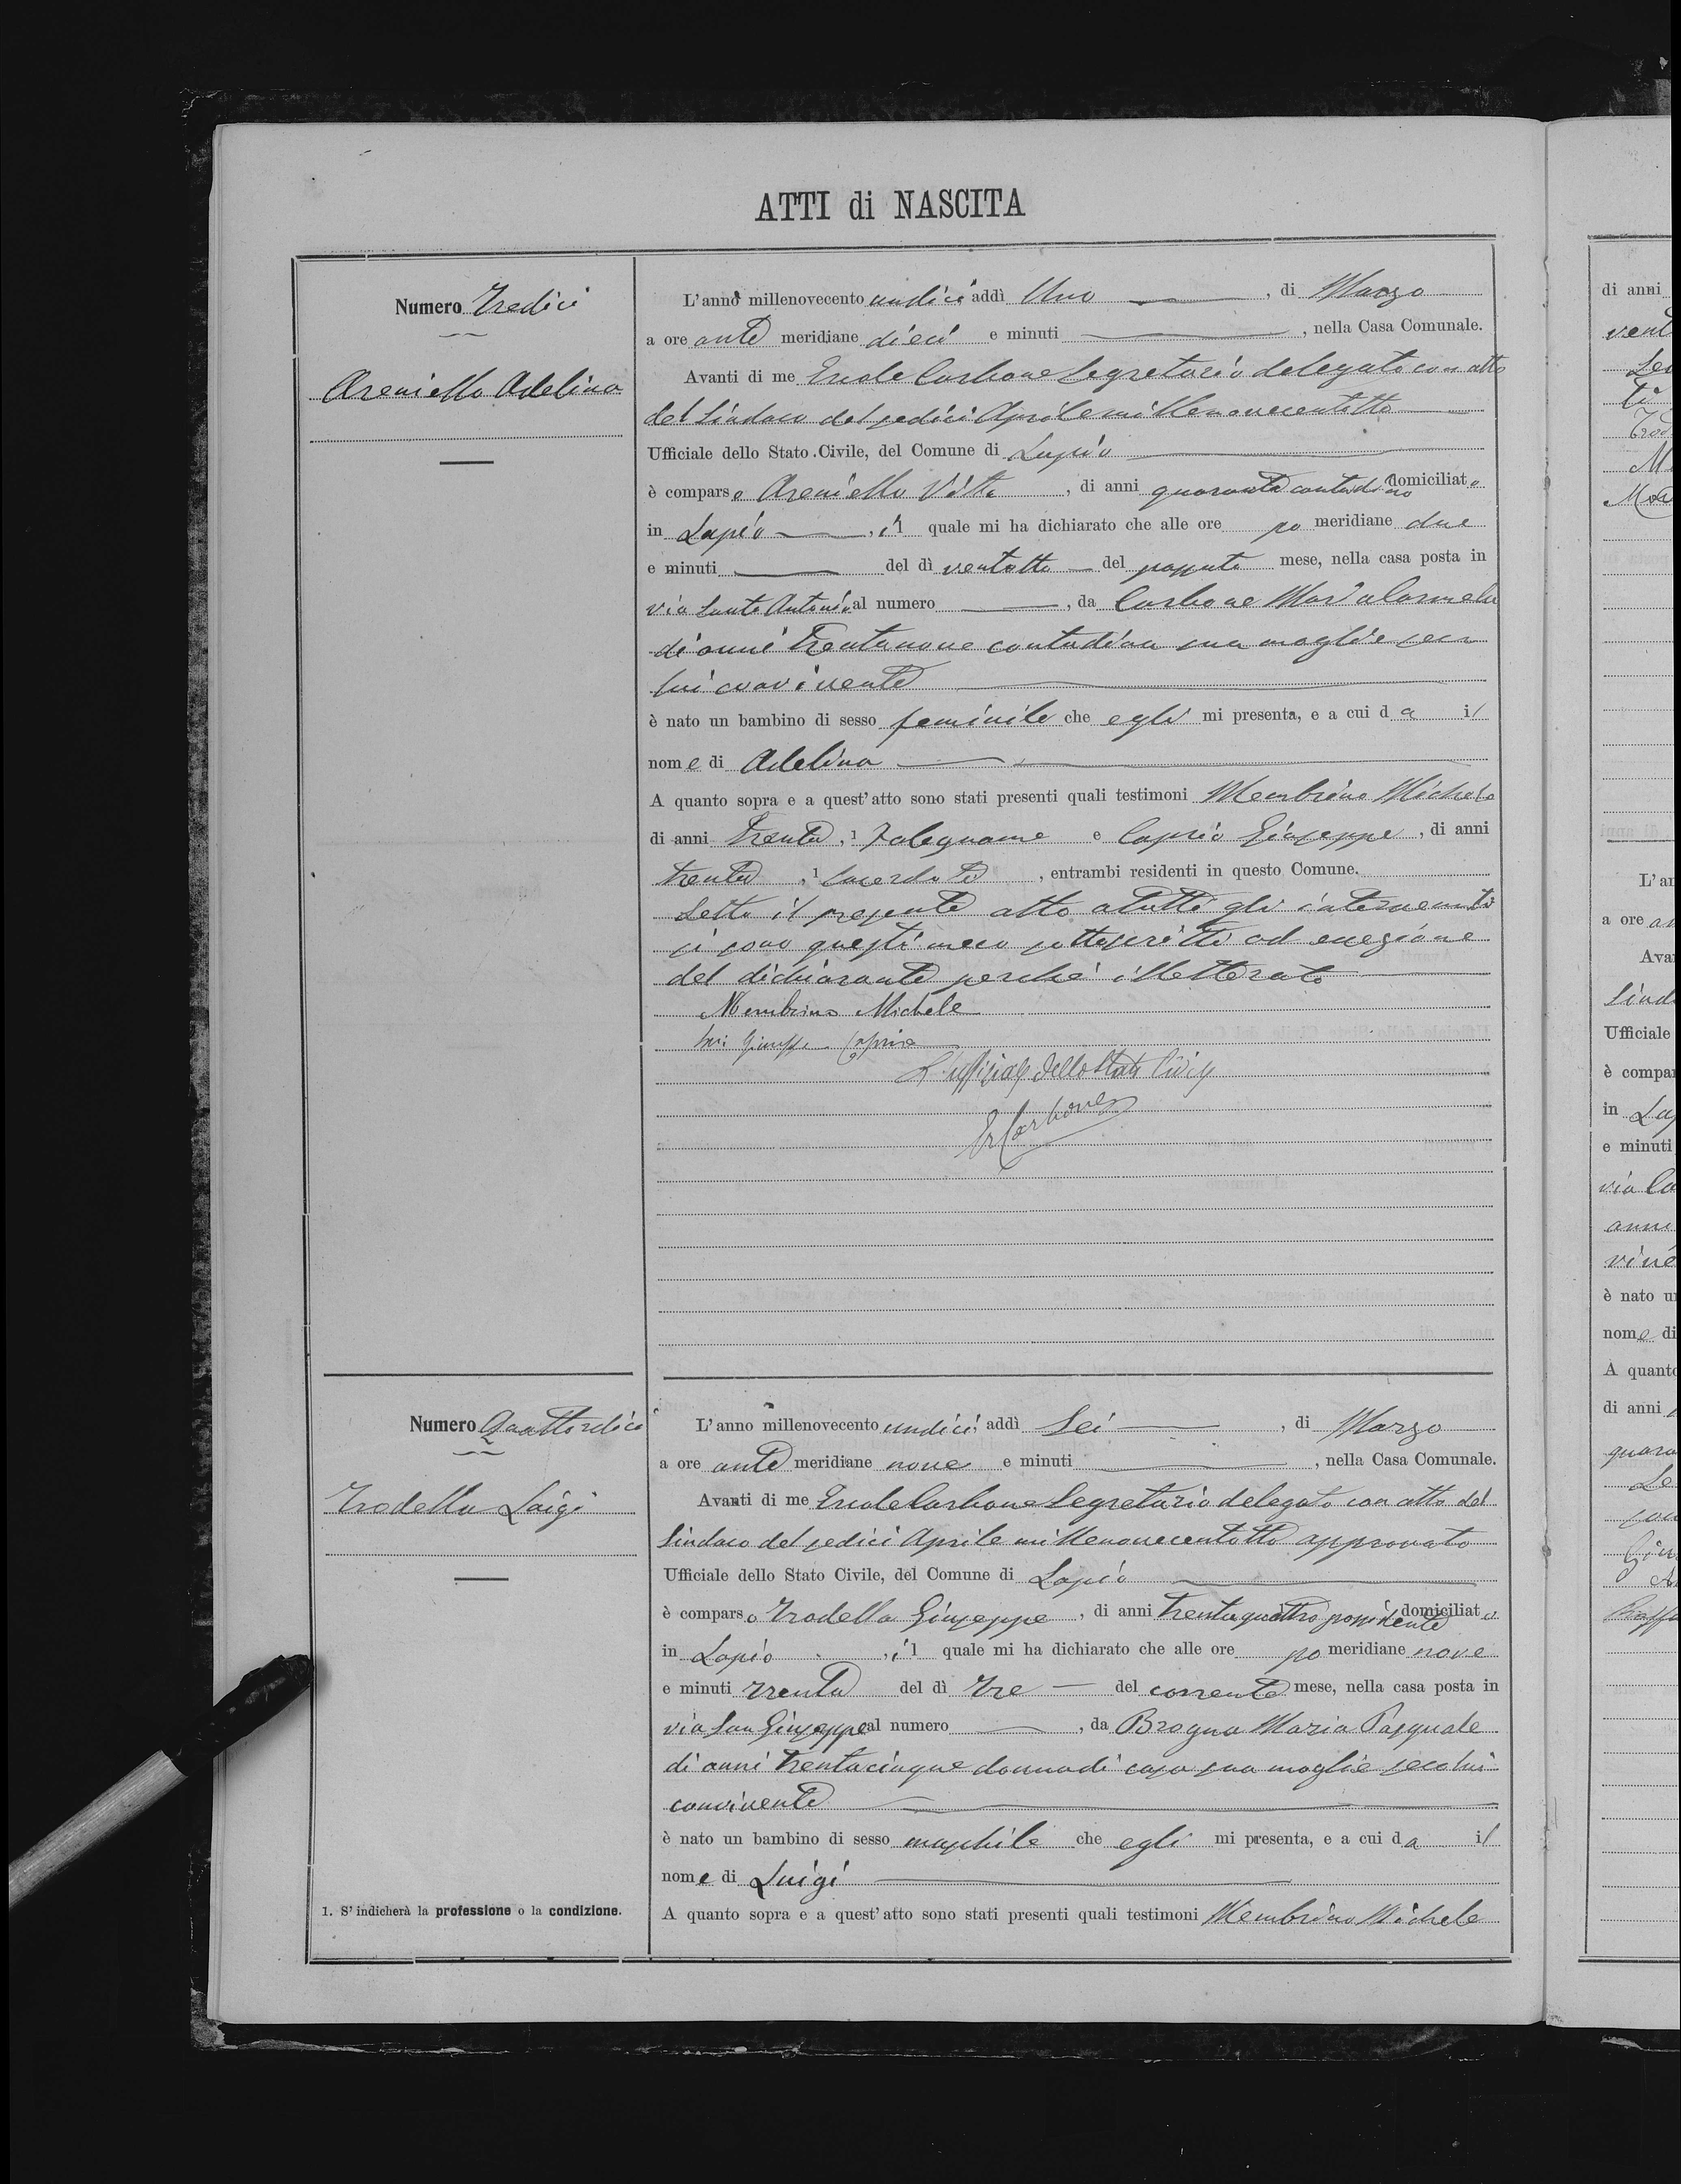 ATTI di NASCITA
Numero Tredici
Areniello Adelina
L'anno millenovecento undici addì Uno, di Marzo
a ore ante meridiane dieci e minuti, nella Casa Comunale.
Avanti di me Ercole Carbone Segretario delegato con atto
del Sindaco del sedici Aprile millenovecentotto
Ufficiale dello Stato Civile, del Comune di Lapio
è comparso Areniello Vito, di anni quaranta contadino domiciliato
in Lapio, il quale mi ha dichiarato che alle ore po meridiane due
e minuti del dì ventotto del passato mese, nella casa posta in
via Santo Antonio al numero, da Carbone Maria Carmela
di anni Trentanove contadina sua moglie seco
lui convivente
è nato un bambino di sesso feminile che egli mi presenta, e a cui da il
nome di Adelina
A quanto sopra e a quest'atto sono stati presenti quali testimoni Membrino Michele
di anni Trenta, 1 Falegname e Caprio Giuseppe, di anni
trenta, 1 Sacerdote, entrambi residenti in questo Comune.
Letto il presente atto a tutti gli intervenuti
si sono questi meco sottoscritti ad eccezione
del dichiarante perché illetterato
Membrino Michele
Giuseppe Caprio
L'uffiziale dello Stato Civile
Er Carbone
Numero Quattordici
Trodella Luigi
1. S'indicherà la professione o la condizione.
L'anno millenovecento undici addì Sei, di Marzo
a ore ante meridiane nove e minuti, nella Casa Comunale.
Avanti di me Ercole Carbone Segretario delegato con atto del
Sindaco del sedici Aprile millenovecentotto approvato
Ufficiale dello Stato Civile, del Comune di Lapio
è comparso Trodella Giuseppe, di anni Trentaquattro possidente domiciliato
in Lapio, il quale mi ha dichiarato che alle ore po meridiane nove
e minuti trenta del dì tre del corrente mese, nella casa posta in
via San Giuseppe al numero, da Brogna Maria Pasquale
di anni trentacinque donna di casa sua moglie seco lui
convivente
è nato un bambino di sesso maschile che egli mi presenta, e a cui da il
nome di Luigi
A quanto sopra e a quest'atto sono stati presenti quali testimoni Membrino Michele
di anni
L'an
a ore an
Avan
Sind
Ufficiale
è compar
in Lap
e minuti
via Ca
anni
è nato un
nome di
A quanto
di anni